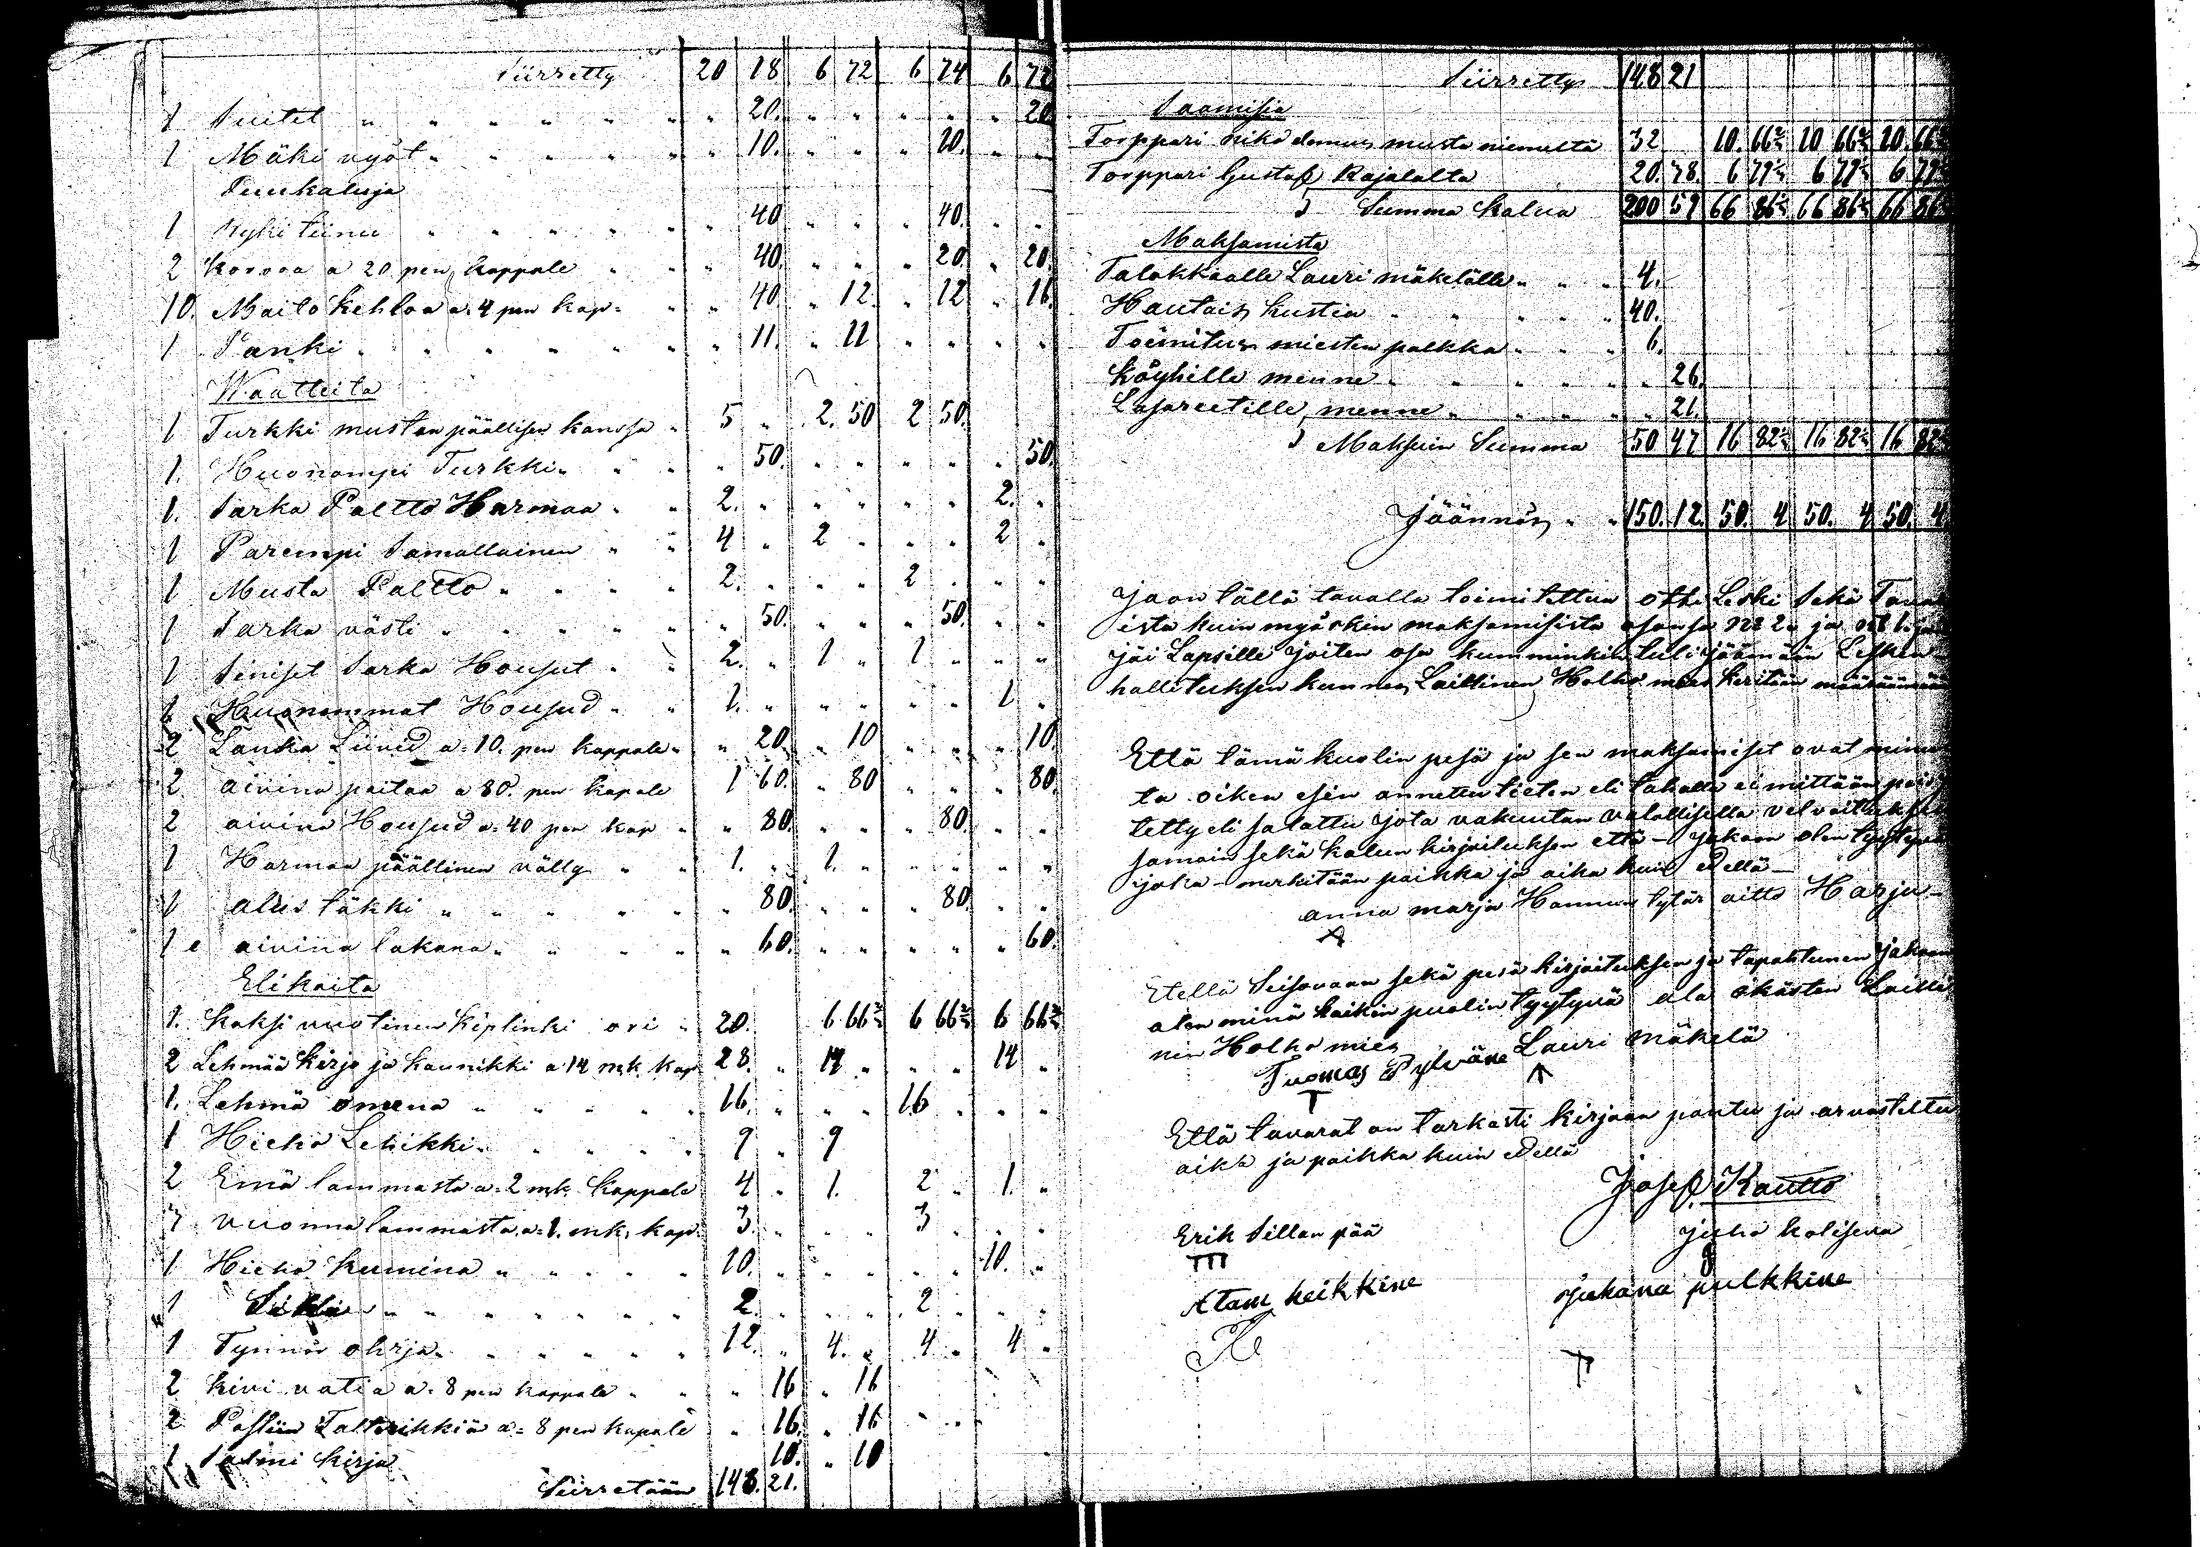 Siirretty 20 18 6 72 6 74 6 72
1 Suitet " " 20. " " " 20
1 Mäki vyöt " " 10. " " 10. " "
Puukaluja
1 Kyki tiinu " " 40 " " 40. " "
2 Korvoa a 20 pen kappale " " 40. " " 20. " 20.
10. Maito kehloa a. 4 pen kap. " " 40. " 12. " 12 " 16.
1 Panki " " 11. " 11 " " " "
Waatteita
1 Turkki mustan päällisen kanssa " 5 " 2. 50 2 50.
1. Huonompi Turkki " " 50. " " " " " 50.
1. Sarka Paltto Harmaa " " 2. " " " " " 2. "
1 Parempi Samallainen " " 4 " 2 " " " 2 "
1 Musta Paltto " " 2. " " " 2 " " "
1 Sarka västi " " 50. " " " 50. " "
1 Siniset Sarka Housut " " 2. " 1 " 1 " " "
1 Huonommat Housud " " 1. " " " " " 1 "
2 Lanka Liivid a. 10. pen kappale " " 20. " 10 " " " 10.
2. aivina paitaa a 80. pen kapale 1 60. " 80 " " " 80.
2 aivina Housud a. 40 pen kap " " 80. " " " 80. " "
1 Harmaa päällinen välly " " 1. " 1. " " " " "
1 alus täkki " " 80. " " " 80. " "
1 e aivina lakana " " 60. " " " " " 60.
Elikoita
1. Kaksi vuotinen Kiplinki ori " 20. 6 66⅔ 6 66⅔ 6 66⅔
2 Lehmää Kirjo ja Kaunikki a 14 mk kap 28. " 14 " " " 14 "
1. Lehmä omena " " 16. " " " 16 " " "
1 Hieho Lehikki " " 9 " 9
2 Emä lammasta a. 2 mk. kappale 4 " 1. 2 " 1. "
3 vuonna lammasta a. 1. mk. kap. 3. " " " 3 " " "
1 Hieho kumina " " 10. " " " " " 10. "
1 Sika " " 2. " " " 2 " " "
1 Tynnör ohrja " " 12. " 4. " 4 " 4 "
2 kivi vatia a. 8 pen kappale " " 16 " 16
2 Posliin Taltrikkiä a = 8 pen kapale " 16. " 16 " "
1 Salmi kirja 10. " 10
Siirretään 148. 21.
Siirretty 148 21
Saamisia
Torppari nikodemus musta niemeltä 32 10. 66⅔ 10 66⅔ 10. 66⅔
Torppari Gustaf Rajalalta 20. 38. 6 79⅓ 6 79⅓ 6. 79⅓
Summa kalua 200 59 66 86⅓ 66 86⅓ 66 86⅓
Maksamista
Talokkaalle Lauri mäkelälle " " 4.
Hautais kustia " " 40.
Toimitus miesten palkka " " 6.
köyhille menne " " 26.
Lasareetille menne " " 21.
Maksuin Summa 50 47 16 82⅓ 16 82⅓ 16 82⅓
Jäännös " " 150. 12. 50. 4 50. 4 50. 4
Jaon tällä tavalla toimitettua otti Leski Sekä Tava
ista kuin myöskin maksamisista osansa ja
jäi Lapsille joiten osa kumminkin tuli jäämään Lesken
hallituksen kunnes Laillinen Holho mies keritään määräämään
Että tämä kuolin pesä ja sen maksamiset ovat minu
ta oiken esin annettu tieten eli tahalla ei mittään pois
tetty eli salattu jota vakuutan valallisella velvoituksella
samoin sekä kalun kirjoituksen että – jakoon olen tyytyväinen
joka – merkitään paikka ja aika kuin Edellä –
anna marja Hannun tytär aitto Harju –
Etellä Seisovaan sekä pesä kirjoituksen ja tapahtunen jakoon
olen minä kaikin puolin tyytyvä ala ikästen Lailli
nen Holho mies
Tuomas Pylväne Lauri Mäkelä
Että tavarat on tarkasti kirjaan pantu ja arvosteltu
aika ja paikka kuin Edellä
Josef Kautto
Erik Sillan pää juho koliseva
Atam heikkine Juhana pulkkine